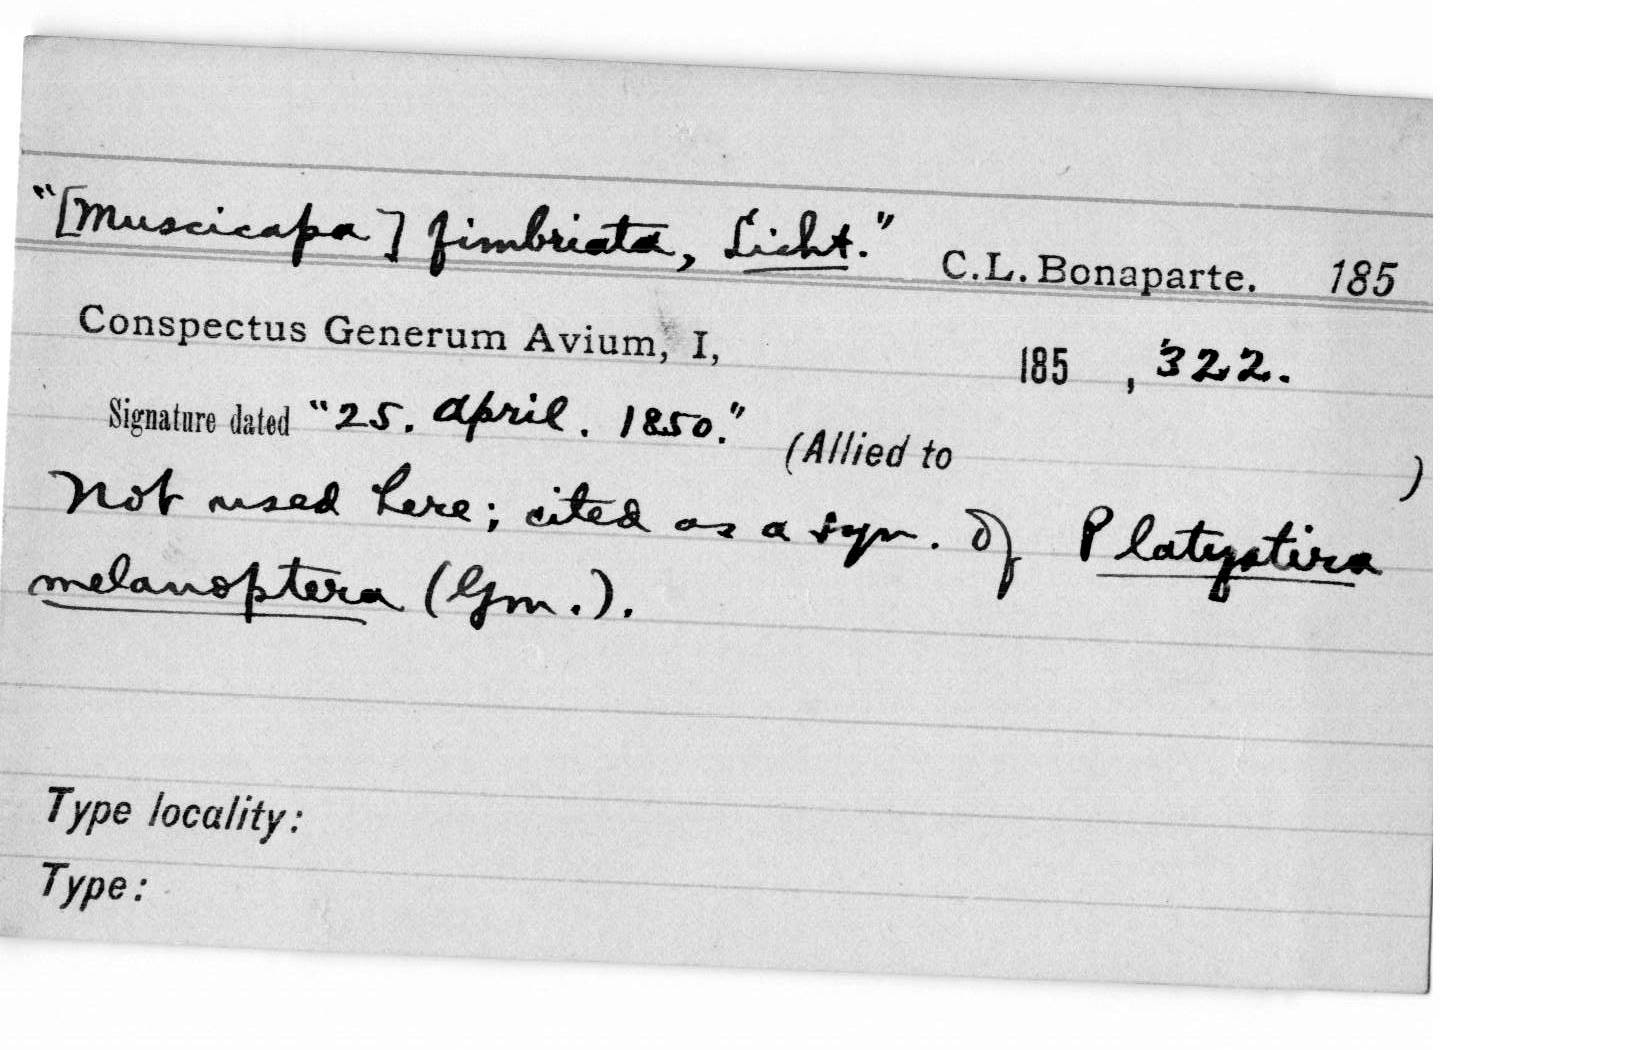 "[Muscicapa] fimbriata, Licht." C.L. Bonaparte. 185
Conspectus Generum Avium, I, 185 , 322.
Signature dated "25. April. 1850." (Allied to )
Not used here; cited as a syn. of Platystira
melanoptera (Gm.).
Type locality:
Type: